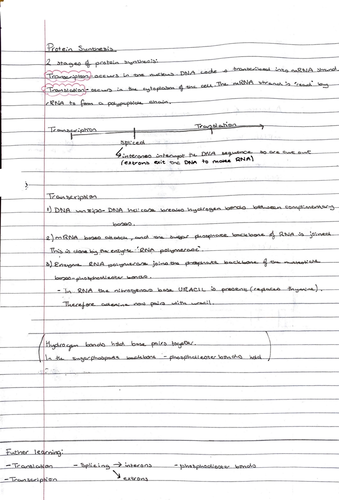 Protein Synthesis
2 stages of protein synthesis:
Transcription: occurs in the nucleus DNA code → transcribed into mRNA strand.
Translation - occurs in the cytoplasm of the cell. The mRNA strand is "read" by
tRNA to form a polypeptide chain.
Transcription Translation
spliced
↳ interons interrupt the DNA sequence so are cut out
(extrons exit the DNA to make RNA)
Transcription
1) DNA unzips - DNA helicase breaks hydrogen bonds between complimentary
bases.
2) mRNA bases attach, and the sugar phosphate backbone of RNA is joined
This is done by the enzyme "RNA polymerase"
3) Enzyme RNA polymerase joins the phosphate backbone of the nucleotide
bases - phosphodiester bonds.
- In RNA the nitrogenous base URACIL is present (replaces thymine).
Therefore adenine now pairs with uracil.
Hydrogen bonds hold base pairs together.
In the sugar phosphate backbone - phosphodiester bonds hold
Futher learning:
- Translation - Splicing → interons - phosphodiester bonds
- Transcription ↘ extrons